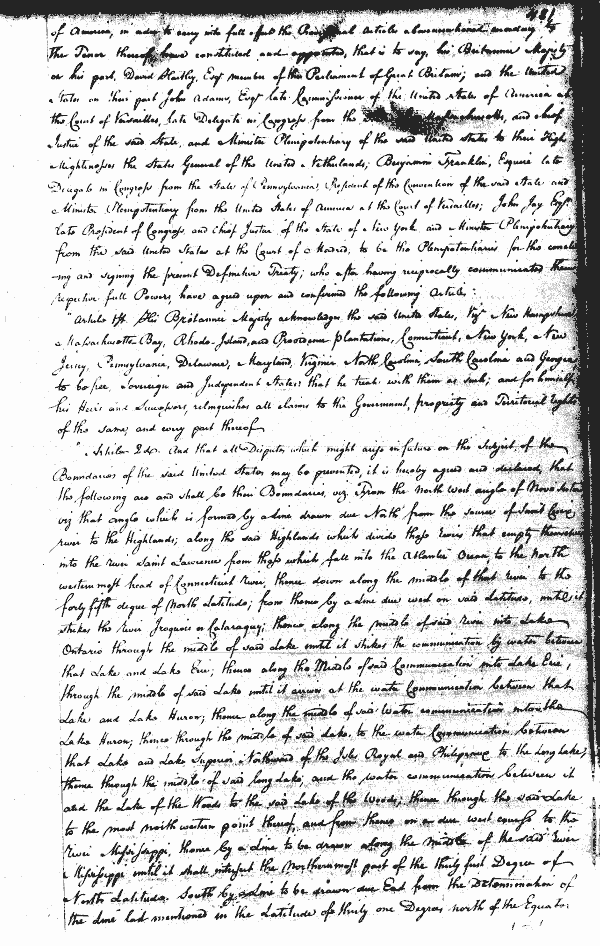 481
of America, in order to carry into full effect the Provisional Articles abovementioned according to
the Tenor thereof, have constituted and appointed, that is to say, his Britannic Majesty
on his part, David Hartley, Esqr member of the Parliament of Great Britain; and the United
States on their part John Adams, Esqr late Commissioner of the United States of America at
the Court of Versailles, late Delegate in Congress from the Massachusetts, and chief
Justice of the said State, and Minister Plenipotentiary of the said United States to their High
Mightinesses the States General of the United Netherlands; Benjamin Franklin, Esquire late
Delegate in Congress from the State of Pennsylvania, President of the Convention of the said State and
Minister Plenipotentiary from the United States of America at the Court of Versailles; John Jay Esqr.
late President of Congress and chief Justice of the State of New York and Minister Plenipotentiary
from the said United States at the Court of Madrid, to be the Plenipotentiaries for the conclu
ing and signing the present Definitive Treaty; who after having reciprocally communicated their
respective full Powers have agreed upon and confirmed the following Articles:
"Article 1st. His Britannic Majesty acknowledges the said United States, Vizt New Hampshire
Massachusetts Bay, Rhode Island, and Providence Plantations, Connecticut, New York, New
Jersey, Pennsylvania, Delaware, Maryland, Virginia North Carolina, South Carolina and Georgia
to be free, Sovereign and Independent States: that he treats with them as such; and for himself
his Heirs and Successors, relinquishes all claims to the Government, propriety and Territorial Rights
of the same, and every part thereof
"Article 2d. And that all Disputes which might arise in future on the Subject of the
Boundaries of the said United States may be prevented, it is hereby agreed and declared, that
the following are and shall be their Boundaries, viz. From the North West angle of Nova Scotia
viz that angle which is formed by a line drawn due North from the source of Saint Croix
river to the Highlands; along the said Highlands which divide those Rivers that empty themselves
into the river Saint Lawrence from those which fall into the Atlantic Ocean, to the North
western most head of Connecticut River, thence down along the middle of that river to the
forty fifth degree of North Latitude; from thence by a Line due west on said latitude, until it
strikes the river Iroquois or Cataraquy; thence along the middle of said River into Lake
Ontario through the middle of said Lake until it strikes the communication by water between
that Lake and Lake Erie; thence along the Middle of said Communication into Lake Erie,
through the middle of said Lake until it arrives at the water Communication between that
Lake and Lake Huron; thence along the middle of said Water communication into the
Lake Huron; thence through the middle of said Lake to the water Communication between
that Lake and Lake Superior Northward of the Isles Royal and Philipeaux to the Long Lake;
thence through the middle of said long Lake, and the water communication between it
and the Lake of the Woods to the said Lake of the Woods; thence through the said Lake
to the most north western point thereof, and from thence on a due west course to the
river Missisippi, thence by a Line to be drawn along the middle of the said river
Missisippi until it shall intersect the Northernmost part of the thirty first Degree of
North Latitude. South by a Line to be drawn due East from the Determination of
the Line last mentioned in the Latitude of thirty one Degrees north of the Equator